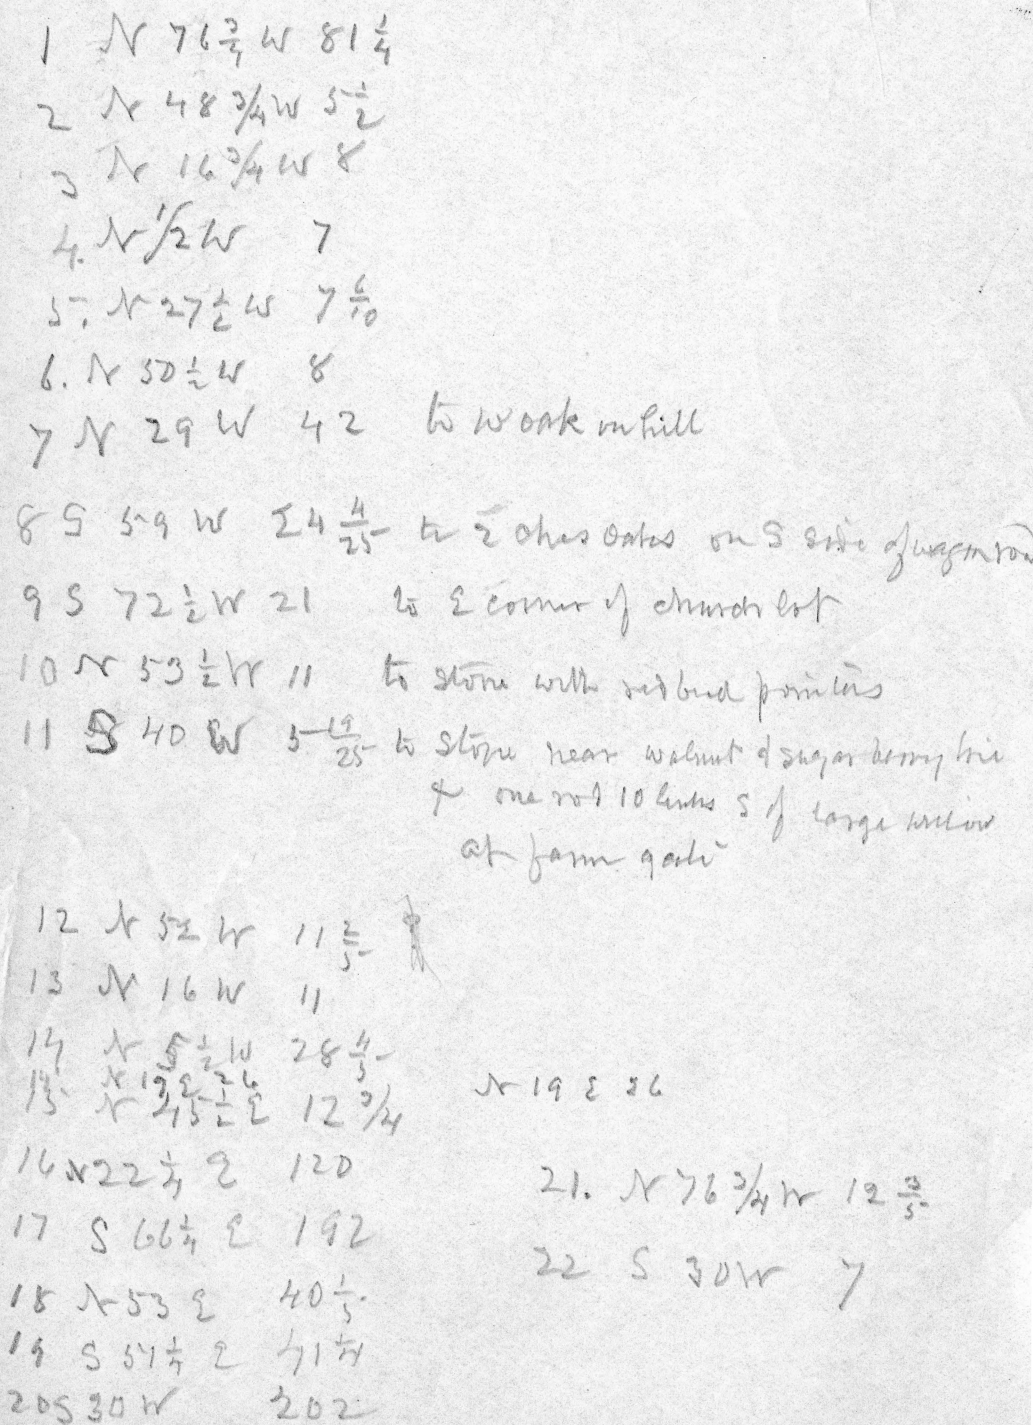 1 N 76 3/4 W 81 1/4
2 N 48 3/4 W 5 1/2
3 N 16 3/4 W 8
4. N 1/2 W 7
5. N 27 1/2 W 7 6/10
6. N 50 1/2 W 8
7 N 29 W 42 to W oak on hill
8 S 59 W 24 4/25 to 2 on S side of wagon road
9 S 72 1/2 W 21 to E corner of church lot
10 N 53 1/2 W 11 to stone with redbud pointers
11 S 40 W 5 19/25 to stone near walnut & sugar berry tree
& one rod 10 links S of large willow
at farm gate
12 N 52 W 11 2/5
13 N 16 W 11
14 N 5 1/2 W 28 4/5
N 19 E 26 N 19 E 26
15 N 45 1/2 E 12 3/4
16 N 22 1/4 E 120
21. N 76 3/4 W 12 3/5
17 S 66 1/4 E 192
22 S 30 W 7
18 N 53 E 40 1/5
19 S 51 1/4 E 41 1/4
20 S 30 W 202